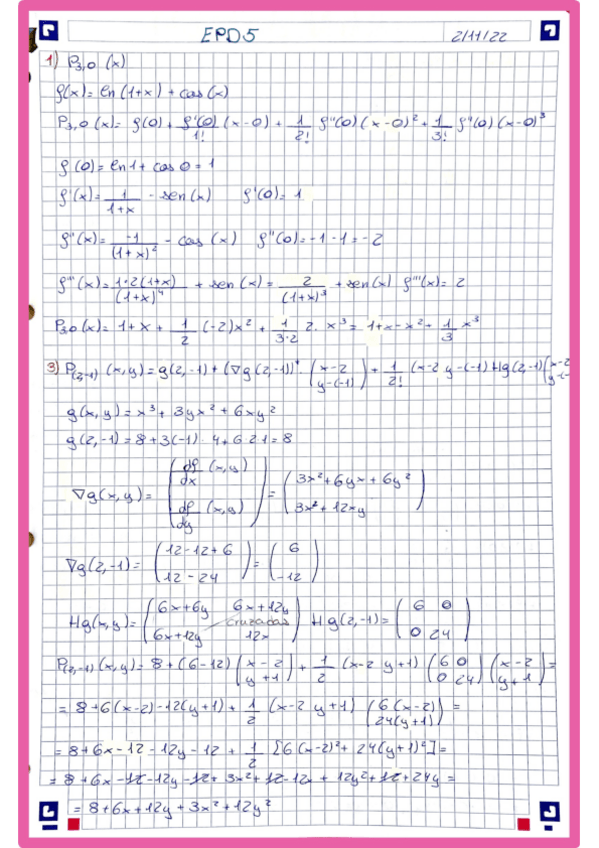 EPD5
2/11/22
1) P3,0 (x)
f(x) = ln (1+x) + cos (x)
P3,0 (x) = f(0) + f'(0)/1! (x-0) + 1/2! f''(0) (x-0)² + 1/3! f'''(0) (x-0)³
f(0) = ln 1 + cos 0 = 1
f'(x) = 1/(1+x) - sen(x) f'(0) = 1
f''(x) = -1/(1+x)² - cos (x) f''(0) = -1 -1 = -2
f'''(x) = 1·2(1+x)/(1+x)⁴ + sen (x) = 2/(1+x)³ + sen(x) f'''(x) = 2
P3,0 (x) = 1 + x + 1/2 (-2)x² + 1/3·2 2· x³ = 1+x-x²+ 1/3 x³
3) P(2,-1) (x,y) = g(2,-1) + (∇g (2,-1))ᵗ · (x-2 y-(-1)) + 1/2! (x-2 y-(-1) Hg(2,-1) (x-2 y-(-
g(x,y) = x³ + 3yx² + 6xy²
g(2,-1) = 8 + 3(-1) · 4 + 6·2·1 = 8
∇g(x,y) = (df/dx (x,y) df/dy (x,y)) = (3x²+6yx+6y² 3x²+12xy)
∇g(2,-1) = (12-12+6 12-24) = (6 -12)
Hg(x,y) = (6x+6y 6x+12y 6x+12y 12x) cruzadas Hg(2,-1) = (6 0 0 24)
P(2,-1) (x,y) = 8 + (6 -12) (x-2 y+1) + 1/2 (x-2 y+1) (6 0 0 24) (x-2 y+1) =
= 8+6(x-2)-12(y+1) + 1/2 (x-2 y+1) (6(x-2) 24(y+1)) =
= 8+6x-12-12y-12 + 1/2 [6(x-2)² + 24(y+1)²] =
= 8+6x-12-12y-12+3x²+12-12x+12y²+12+24y =
= 8+6x+12y+3x²+12y²